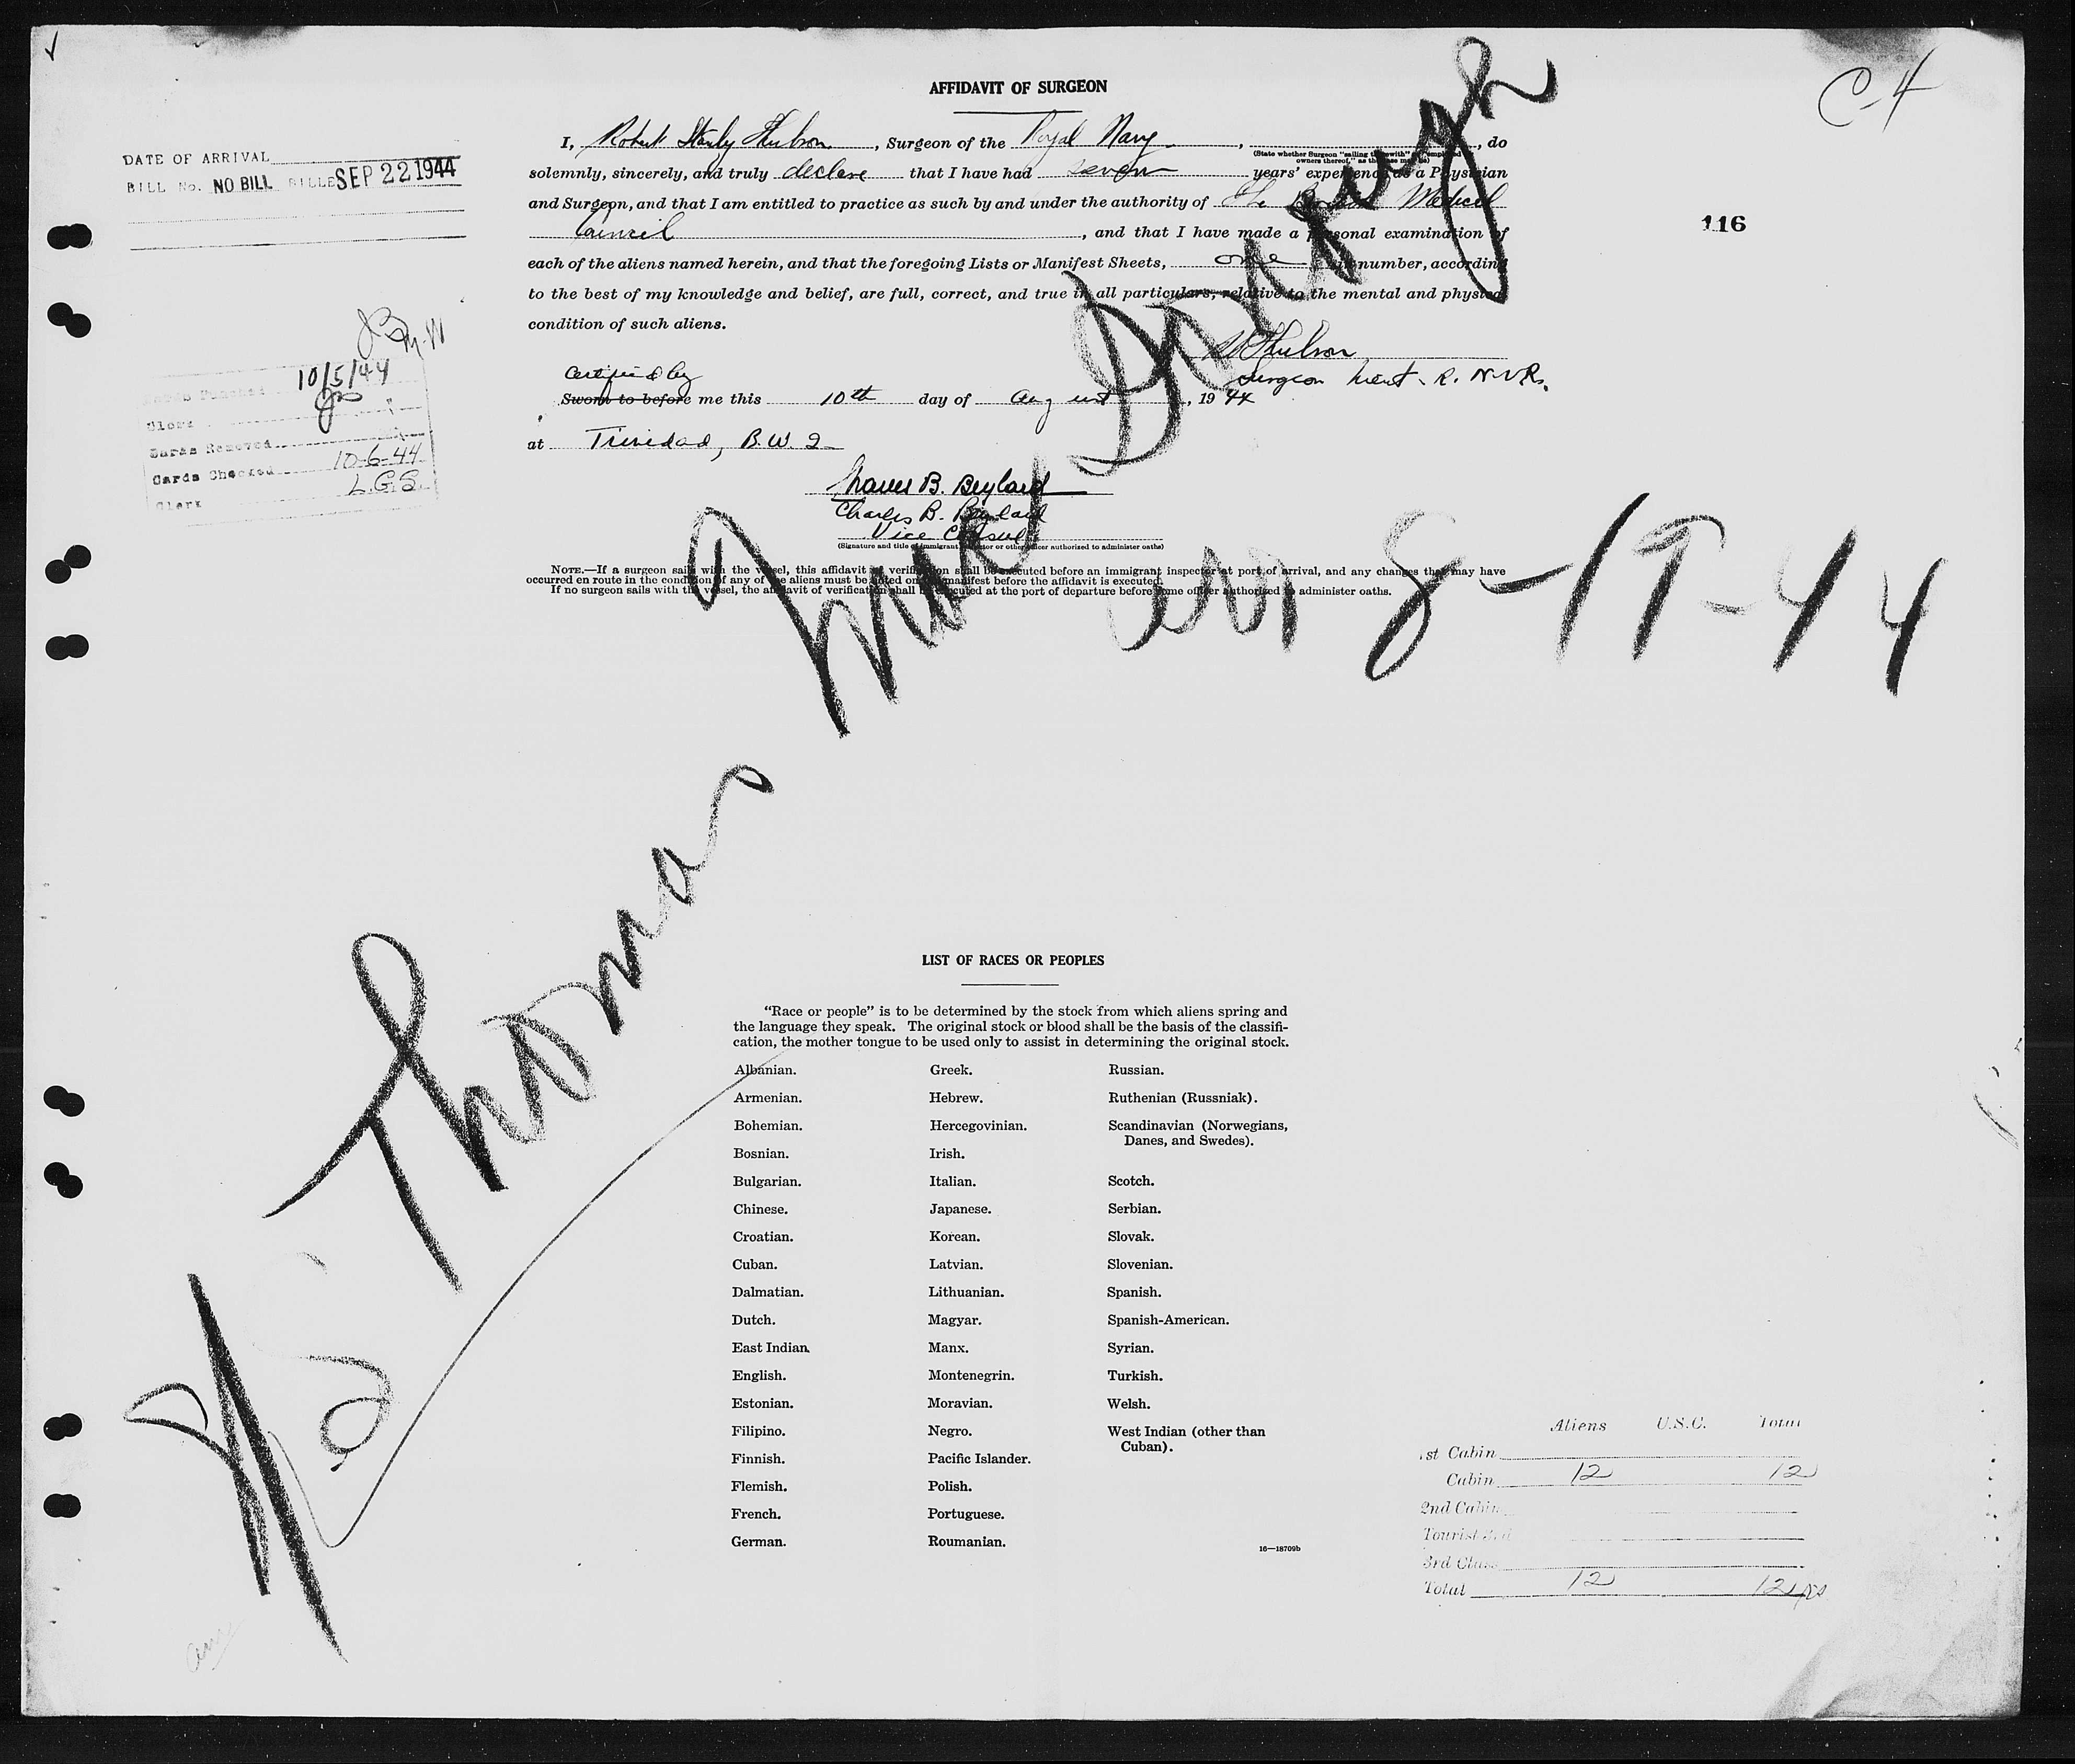 C-4
AFFIDAVIT OF SURGEON
I, Robert Stanly, Surgeon of the Royal Navy, do
(State whether Surgeon "sailing therewith" employed
owners thereof," as the case may be)
solemnly, sincerely, and truly declare that I have had seven years' experience as a Physician
and Surgeon, and that I am entitled to practice as such by and under the authority of The Medical
Council, and that I have made a personal examination of
each of the aliens named herein, and that the foregoing Lists or Manifest Sheets, one in number, according
to the best of my knowledge and belief, are full, correct, and true in all particulars, relative to the mental and physical
condition of such aliens.
Surgeon Lieut. R.N.V.R.
Certified by
Sworn to before me this 10th day of August, 1944
at Trinidad, B.W.I.
Charles B. Beylard
Charles B. Beylard
Vice Consul
(Signature and title of immigrant inspector or other officer authorized to administer oaths)
NOTE.—If a surgeon sails with the vessel, this affidavit of verification shall be executed before an immigrant inspector at port of arrival, and any changes that may have
occurred en route in the condition of any of the aliens must be noted on the manifest before the affidavit is executed.
If no surgeon sails with the vessel, the affidavit of verification shall be executed at the port of departure before some officer authorized to administer oaths.
DATE OF ARRIVAL
BILL No. NO BILL BILLE SEP 22 1944
116
10/5/44
Cards Punched
Clerk
Cards Removed
Cards Checked 10-6-44
Clerk L.G.S.
8-19-44
Thomas
LIST OF RACES OR PEOPLES
"Race or people" is to be determined by the stock from which aliens spring and
the language they speak. The original stock or blood shall be the basis of the classifi-
cation, the mother tongue to be used only to assist in determining the original stock.
Albanian.
Armenian.
Bohemian.
Bosnian.
Bulgarian.
Chinese.
Croatian.
Cuban.
Dalmatian.
Dutch.
East Indian
English.
Estonian.
Filipino.
Finnish.
Flemish.
French.
German.
Greek.
Hebrew.
Hercegovinian.
Irish.
Italian.
Japanese.
Korean.
Latvian.
Lithuanian.
Magyar.
Manx.
Montenegrin.
Moravian.
Negro.
Pacific Islander.
Polish.
Portuguese.
Roumanian.
Russian.
Ruthenian (Russniak).
Scandinavian (Norwegians,
Danes, and Swedes).
Scotch.
Serbian.
Slovak.
Slovenian.
Spanish.
Spanish-American.
Syrian.
Turkish.
Welsh.
West Indian (other than
Cuban).
16—18709b
Aliens U.S.C. Total
1st Cabin
Cabin 12 12
2nd Cabin
Tourist 3rd
3rd Class
Total 12 12